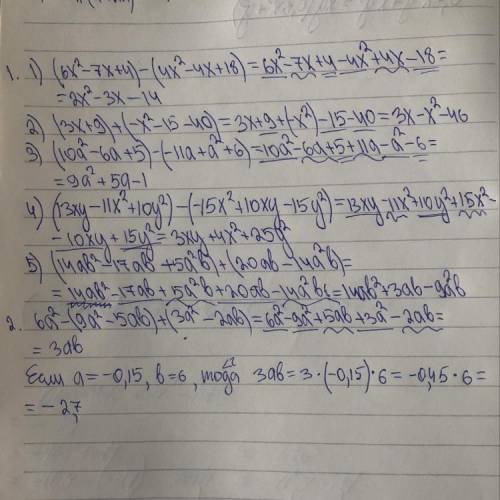 1. 1) (6x²-7x+4)-(4x²-4x+18)=6x²-7x+4-4x²+4x-18=
=2x²-3x-14
2) (3x+9)+(-x²-15-40)=3x+9+(-x²)-15-40=3x-x²-46
3) (10a²-6a+5)-(-11a+a²+6)=10a²-6a+5+11a-a²-6=
=9a²+5a-1
4) (13xy-11x²+10y²)-(-15x²+10xy-15y²)=13xy-11x²+10y²+15x²-
-10xy+15y²=3xy+4x²+25y²
5) (14ab²-17ab+5a²b)+(20ab-14a²b)=
=14ab²-17ab+5a²b+20ab-14a²b=14ab²+3ab-9a²b
2. 6a²-(9a²-5ab)+(3a²-2ab)=6a²-9a²+5ab+3a²-2ab=
=3ab
Если a=-0,15, b=6, тогда 3ab=3·(-0,15)·6=-0,45·6=
=-2,7